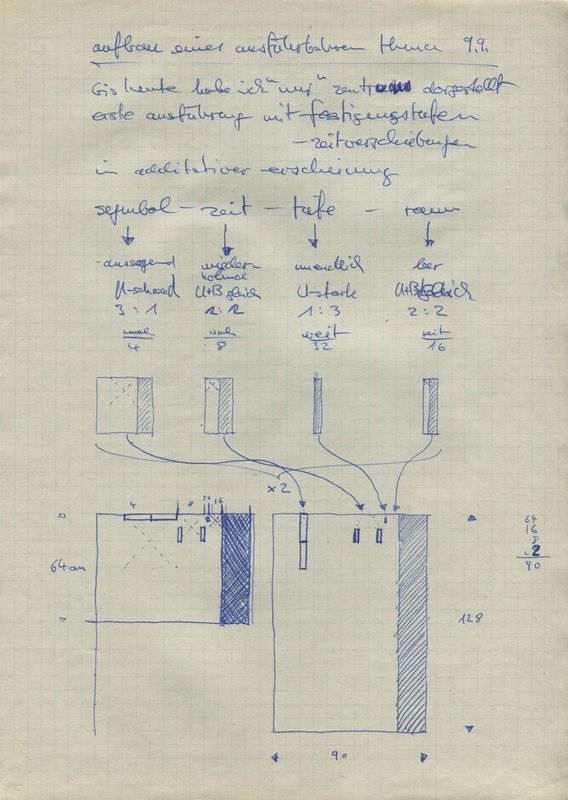 aufbau eines ausführbahren thema 9.9.
bis heute habe ich "nur" dargestellt
erste ausführung mit festigungstafeln
- zeitverschiebungen
in additativer erscheinung
symbol - zeit - tiefe - raum
aussagend wiederholend unendlich leer
U-schwach U+B gleich U-stark U+B gleich
3:1 2:2 1:3 2:2
nah nah weit weit
4 8 32 16
x2
4 8 16
64 cm
128
64
16
8
2
90
90